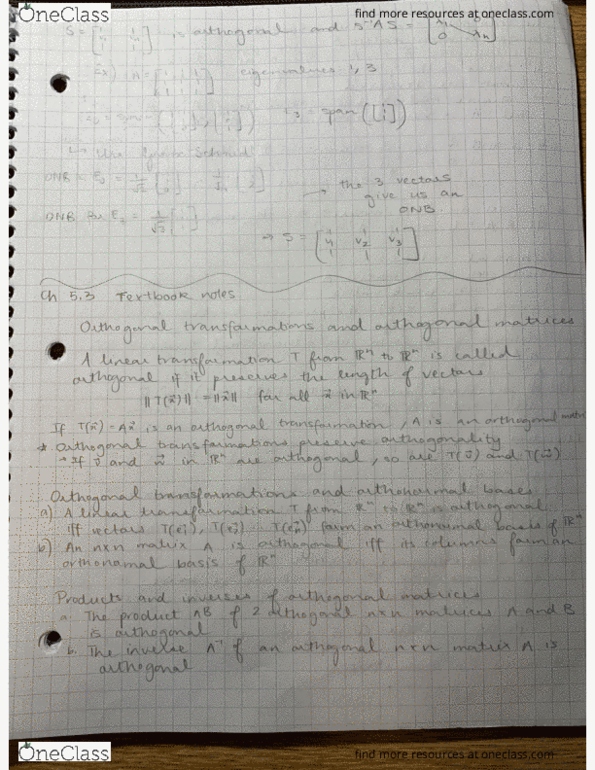 OneClass
find more resources at oneclass.com
S = is orthogonal and S⁻¹AS =
Ex) A = eigenvalues 0, 3
= span
↳ Use Gram-Schmidt
ONB
→ the 3 vectors
give us an
ONB.
ONB for E
→ S = [v₁ v₂ v₃]
Ch 5.3 Textbook notes
Orthogonal transformations and orthogonal matrices
A linear transformation T from ℝⁿ to ℝⁿ is called
orthogonal if it preserves the length of vectors
||T(x⃗)|| = ||x⃗|| for all x⃗ in ℝⁿ
If T(x⃗) = Ax⃗ is an orthogonal transformation, A is an orthogonal
* Orthogonal transformations preserve orthogonality
→ If v⃗ and w⃗ in ℝⁿ are orthogonal, so are T(v⃗) and T(w⃗)
Orthogonal transformations and orthonormal bases
a) A linear transformation T from ℝⁿ to ℝⁿ is orthogonal
iff vectors T(e⃗₁), T(e⃗₂) ... T(e⃗ₙ) form an orthonormal basis of ℝⁿ
b) An nxn matrix A is orthogonal iff its columns form an
orthonormal basis of ℝⁿ
Products and inverses of orthogonal matrices
a. The product AB of 2 orthogonal nxn matrices A and B
is orthogonal
b. The inverse A⁻¹ of an orthogonal nxn matrix A is
orthogonal
OneClass
find more resources at oneclass.com